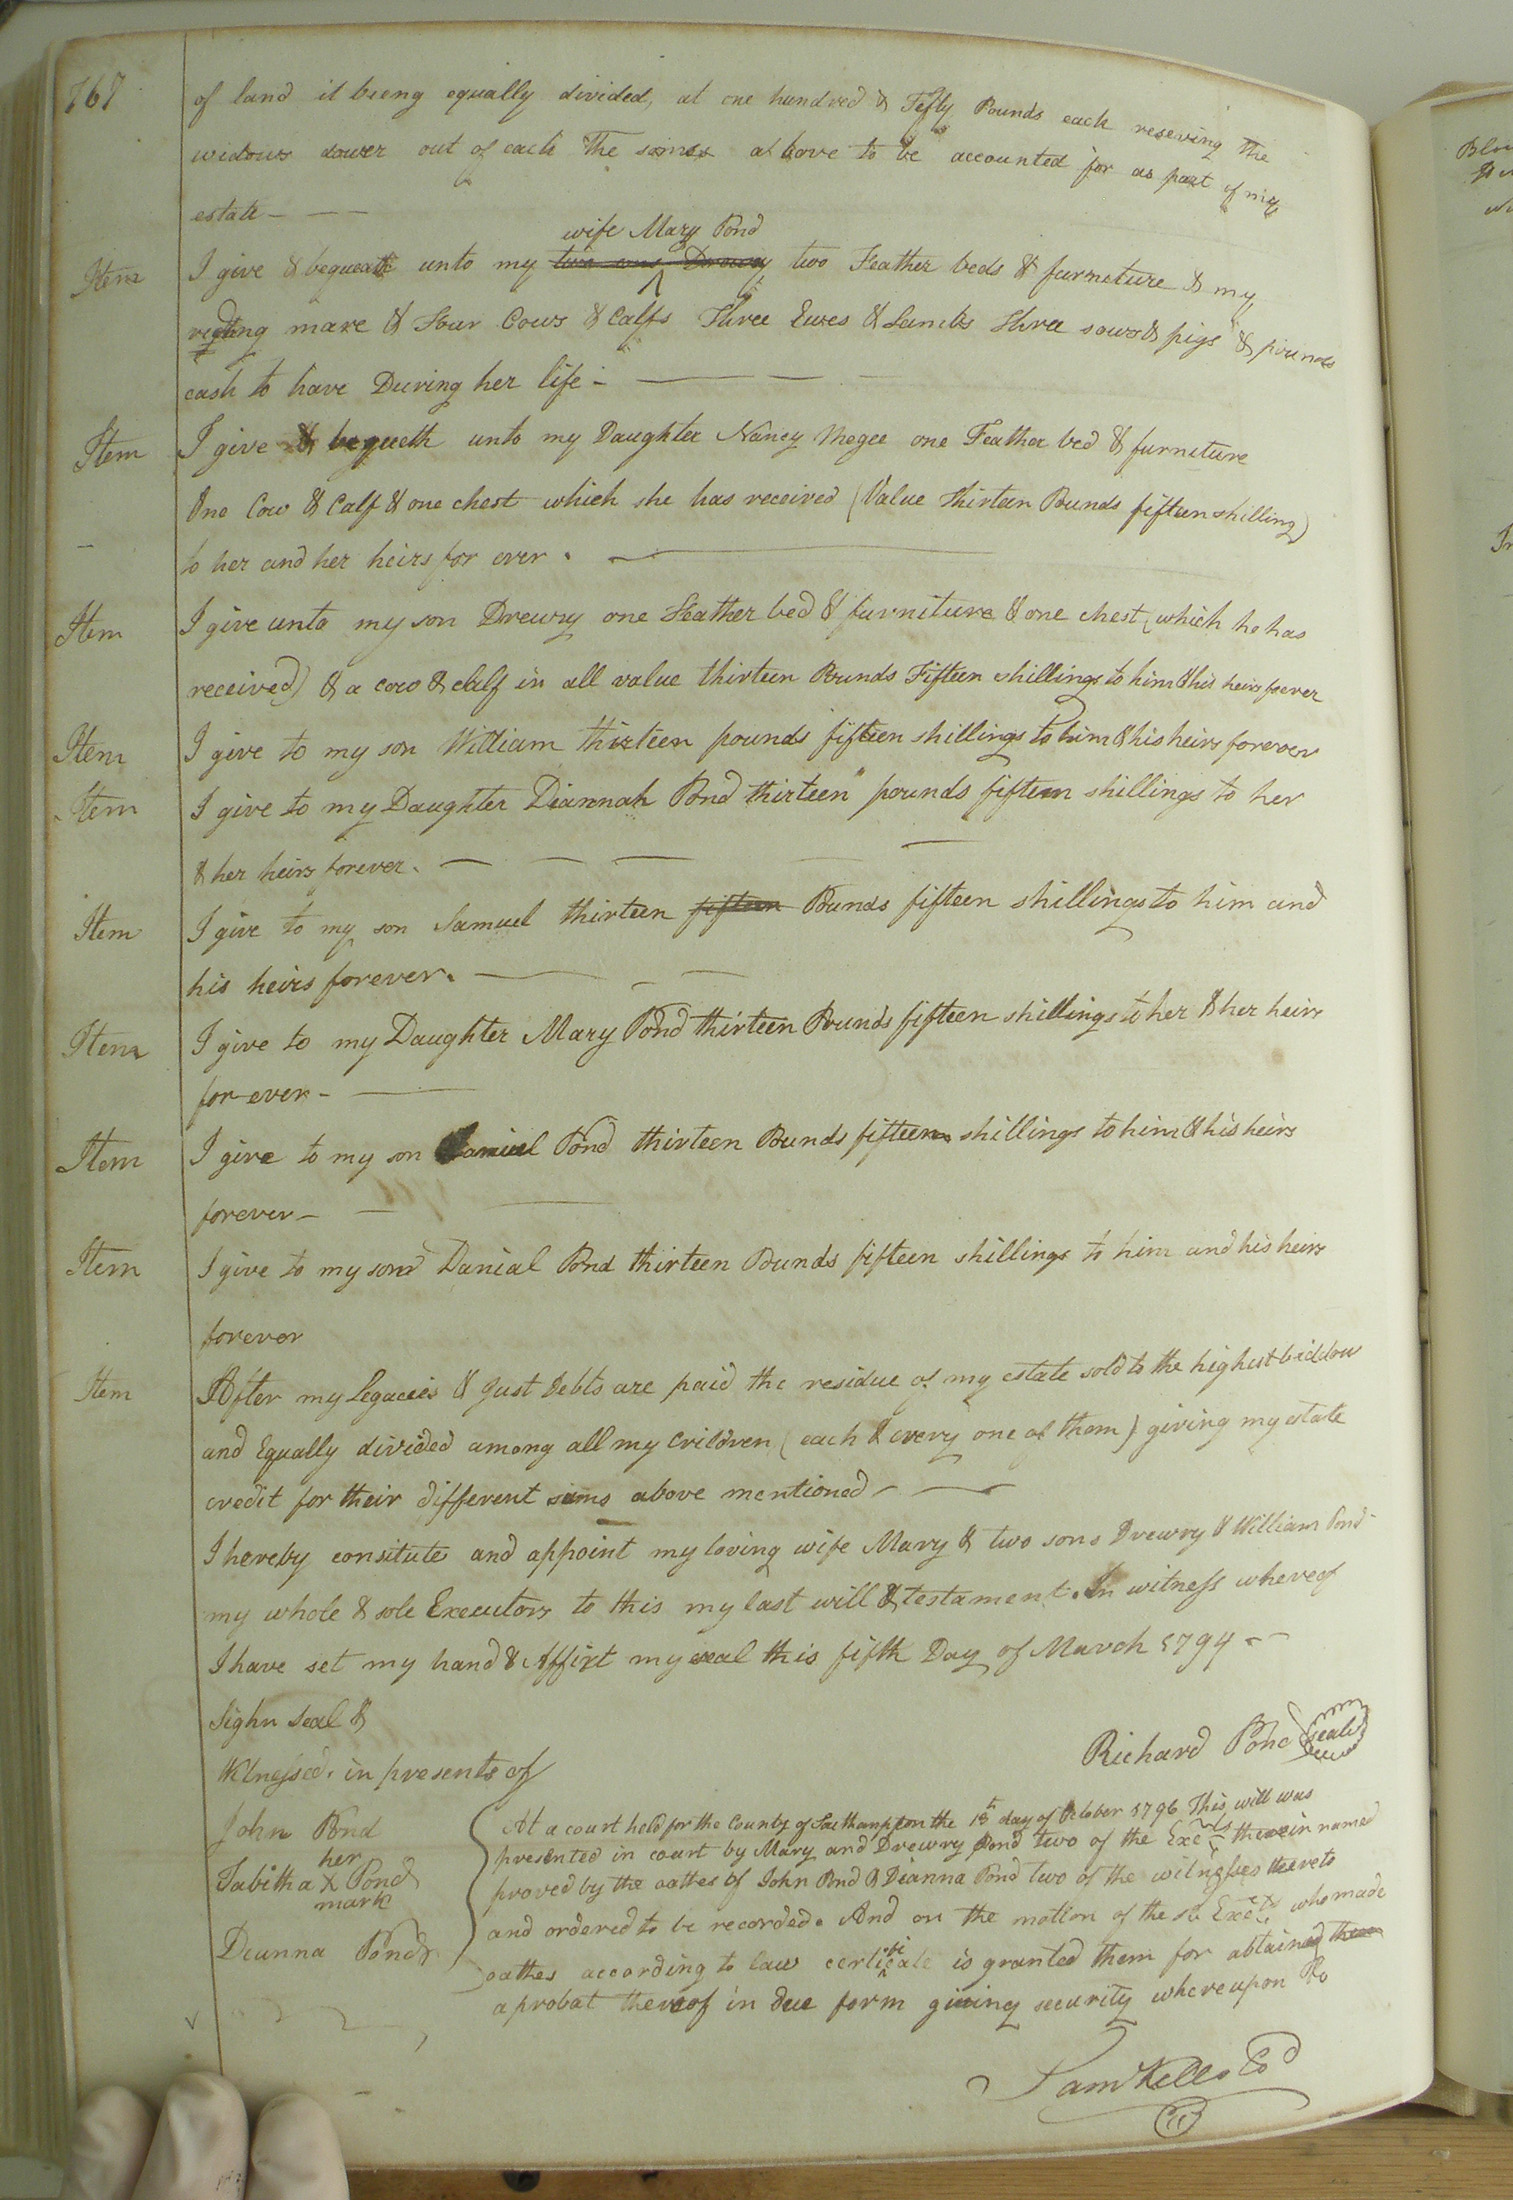 767
of land it being equally divided, at one hundred & Fifty Pounds each reseving the
widows dower out of each The sums above to be accounted for as part of my
estate
wife Mary Pond
Item I give & bequeath unto my two sons Drewry two Feather beds & furneture & my
rideing mare & Four Cows & Calfs Three Ewes & Lambs Three sows & pigs &
cash to have During her life
Item I give & begueth unto my Daughter Nancy Megee one Feather bed & furneture
One Cow & Calf & one chest which she has received (Value Thirteen Pounds fifteen shilling)
to her and her heirs for ever.
Item I give unto my son Drewry one Feather bed & furniture & one chest (which he has
received) & a cow & calf in all value thirteen Pounds Fifteen shillings to him & his heirs forever
Item I give to my son William thirteen pounds fifteen shillings to him & his heirs forever
Item I give to my Daughter Diannah Pond thirteen pounds fifteen shillings to her
& her heirs forever.
Item I give to my son Samuel thirteen fifteen Pounds fifteen shillings to him and
his heirs forever.
Item I give to my Daughter Mary Pond thirteen Pounds fifteen shillings to her & her heirs
for ever
Item I give to my son Pond thirteen Pounds fifteen shillings to him & his heirs
forever
Item I give to my son Danial Pond thirteen Pounds fifteen shillings to him and his heirs
forever
Item After my Legacies & Just Debts are paid the residue of my estate sold to the highest biddow
and Equally divided among all my Crildren (each & every one of them) giving my estate
credit for their different sums above mentioned
I hereby consitute and appoint my loving wife Mary & two sons Drewry & William Pond
my whole & sole Executors to this my last will & testament. In witness whereof
I have set my hand & Affixt my seal this fifth Day of March 1794
Sighn Seal &
Witnessed in presents of
Richard Pond seal
John Pond
her
Tabitha X Pond
mark
Deanna Pond
At a court held for the County of Southampton the 13th day of October 1796 This will was
presented in court by Mary and Drewry Pond two of the Exers therein named
proved by the oathes of John Pond & Dianna Pond two of the witnesses thereto
and ordered to be recorded. And on the motion of the sd Exects who made
oathes according to law certificate is granted them for abtained
a probat thereof in due form giving security whereupon &c
Saml Kello